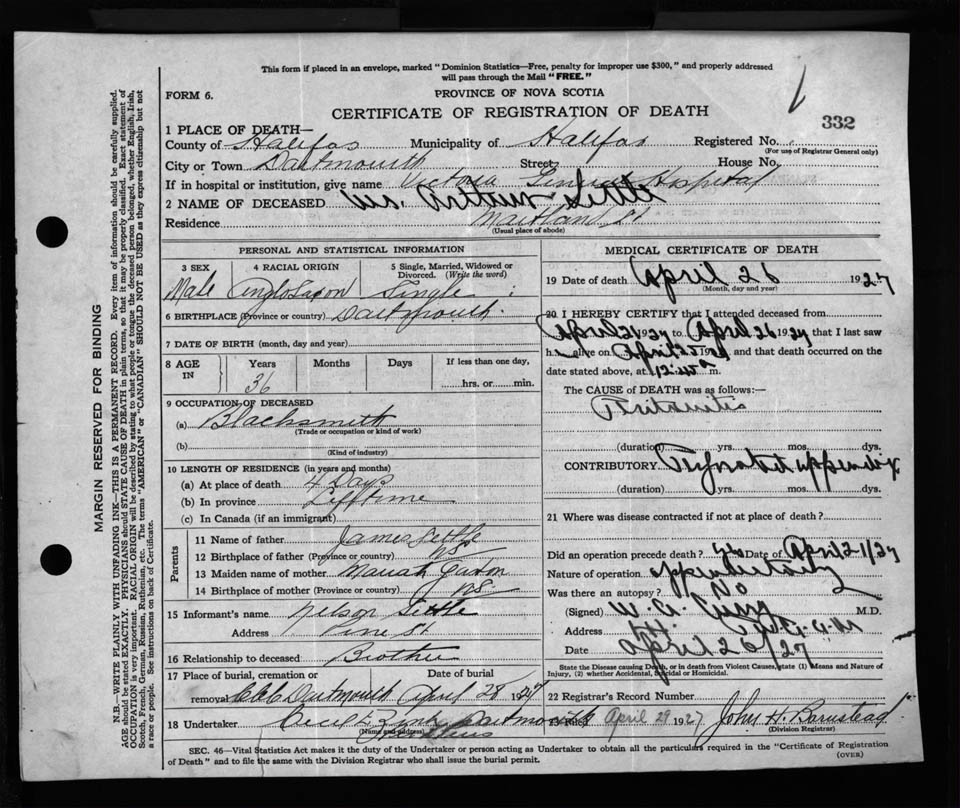 This form if placed in an envelope, marked "Dominion Statistics—Free, penalty for improper use $300," and properly addressed
will pass through the Mail "FREE."
FORM 6.
PROVINCE OF NOVA SCOTIA
CERTIFICATE OF REGISTRATION OF DEATH
332
1 PLACE OF DEATH—
County of Halifax Municipality of Halifax Registered No.
(For use of Registrar General only)
City or Town Dartmouth Street House No.
If in hospital or institution, give name Victoria General Hospital
2 NAME OF DECEASED Arthur Settle
Residence Maitland St
(Usual place of abode)
PERSONAL AND STATISTICAL INFORMATION
3 SEX 4 RACIAL ORIGIN 5 Single, Married, Widowed or Divorced. (Write the word)
Male Anglo Saxon Single
6 BIRTHPLACE (Province or country) Dartmouth
7 DATE OF BIRTH (month, day and year)
8 AGE IN Years Months Days If less than one day,
36 hrs. or min.
9 OCCUPATION OF DECEASED
(a) Blacksmith
(Trade or occupation or kind of work)
(b)
(Kind of industry)
10 LENGTH OF RESIDENCE (in years and months)
(a) At place of death 4 Days
(b) In province Lifftime
(c) In Canada (if an immigrant)
Parents
11 Name of father James Settle
12 Birthplace of father (Province or country) NS
13 Maiden name of mother Mariah
14 Birthplace of mother (Province or country) NS
15 Informant's name Nelson Settle
Address Pine St
16 Relationship to deceased Brother
17 Place of burial, cremation or removal Date of burial
Dartmouth April 28 1927
18 Undertaker Cecil E. Dartmouth
(Name and address)
MEDICAL CERTIFICATE OF DEATH
19 Date of death April 26 1927
(Month, day and year)
20 I HEREBY CERTIFY that I attended deceased from
April 21 1927 to April 26 1927 that I last saw
h alive on April 25 19 , and that death occurred on the
date stated above, at 12.45 m.
The CAUSE of DEATH was as follows:
Peritonitis
(duration) yrs. mos. dys.
CONTRIBUTORY appendix
(duration) yrs. mos. dys.
21 Where was disease contracted if not at place of death?
Did an operation precede death? yes Date of April 21/27
Nature of operation appendectomy
Was there an autopsy? no
(Signed) M.D.
Address
Date April 26/27
State the Disease causing Death, or in death from Violent Causes, state (1) Means and Nature of
Injury, (2) whether Accidental, Suicidal or Homicidal.
22 Registrar's Record Number
April 29 1927 John H. Barnstead
(Division Registrar)
SEC. 46—Vital Statistics Act makes it the duty of the Undertaker or person acting as Undertaker to obtain all the particulars required in the "Certificate of Registration
of Death" and to file the same with the Division Registrar who shall issue the burial permit.
(OVER)
MARGIN RESERVED FOR BINDING
N.B.—WRITE PLAINLY WITH UNFADING INK—THIS IS A PERMANENT RECORD. Every item of information should be carefully supplied.
AGE should be stated EXACTLY. PHYSICIANS should STATE CAUSE OF DEATH in plain terms, so that it may be properly classified. Exact statement of
OCCUPATION is very important. RACIAL ORIGIN will be described by stating to what people or tongue the deceased person belonged, whether English, Irish,
Scotch, French, German, Russian, Ruthenian, etc. The terms "AMERICAN" or "CANADIAN" SHOULD NOT BE USED as they express citizenship but not
a race or people. See instructions on back of Certificate.